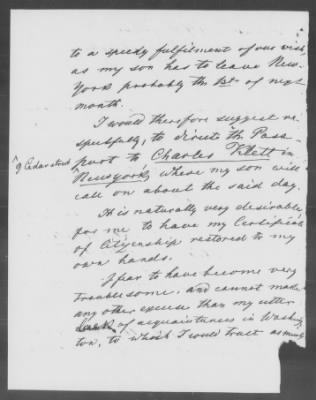 to a speedy fulfilment of our wish,
as my son has to leave New-
York probably the 1st of next
month.
I would therefore suggest re-
spectfully, to direct the Pass-
9 Cedar street
port to Charles Tilett in
Newyork, where my son will
call on about the said day.
It is naturally very desirable
for me to have my Certificate
of Citizenship restored to my
own hands.
I fear to have become very
troublesome, and cannot make
any other excuse than my utter
lack of acquaintances in Washing-
ton, to which I would trust as much